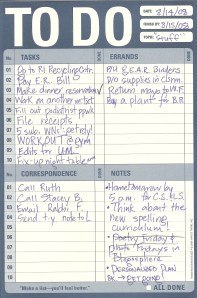 TO DO
DATE: 8/14/08
WORK BY: 8/15/08
TOPIC: "Stuff"
TASKS
ERRANDS
No.
01 Go to RI Recycling Cntr.
02 Pay E.R. Bill
03 Make dinner reservation
04 Work on another
05 Fill out pediatrist ppwk
06 File receipts
07 5 sub. WNs: get ndy!
08 WORKOUT @ gym
09 Edits for
10 Fix-up night table
P/U B.E.A.R. Binders
D/O supplies in Clsrm.
Return mayo to W.F.
Buy a plant for B.R.
CORRESPONDENCE
NOTES
No.
01 Call Ruth
02 Call Stacey B.
03 Email Rabbi F.
04 Send t.y. note to L.
05
06
07
08
09
10
• Home tmorrow by
5 p.m. for
• Think about the
new spelling
curriculum!
• Poetry Friday &
Photo Fridays in
Blogosphere
• PERSONALIZED PLAN
"Make a list—you'll feel better."
ALL DONE